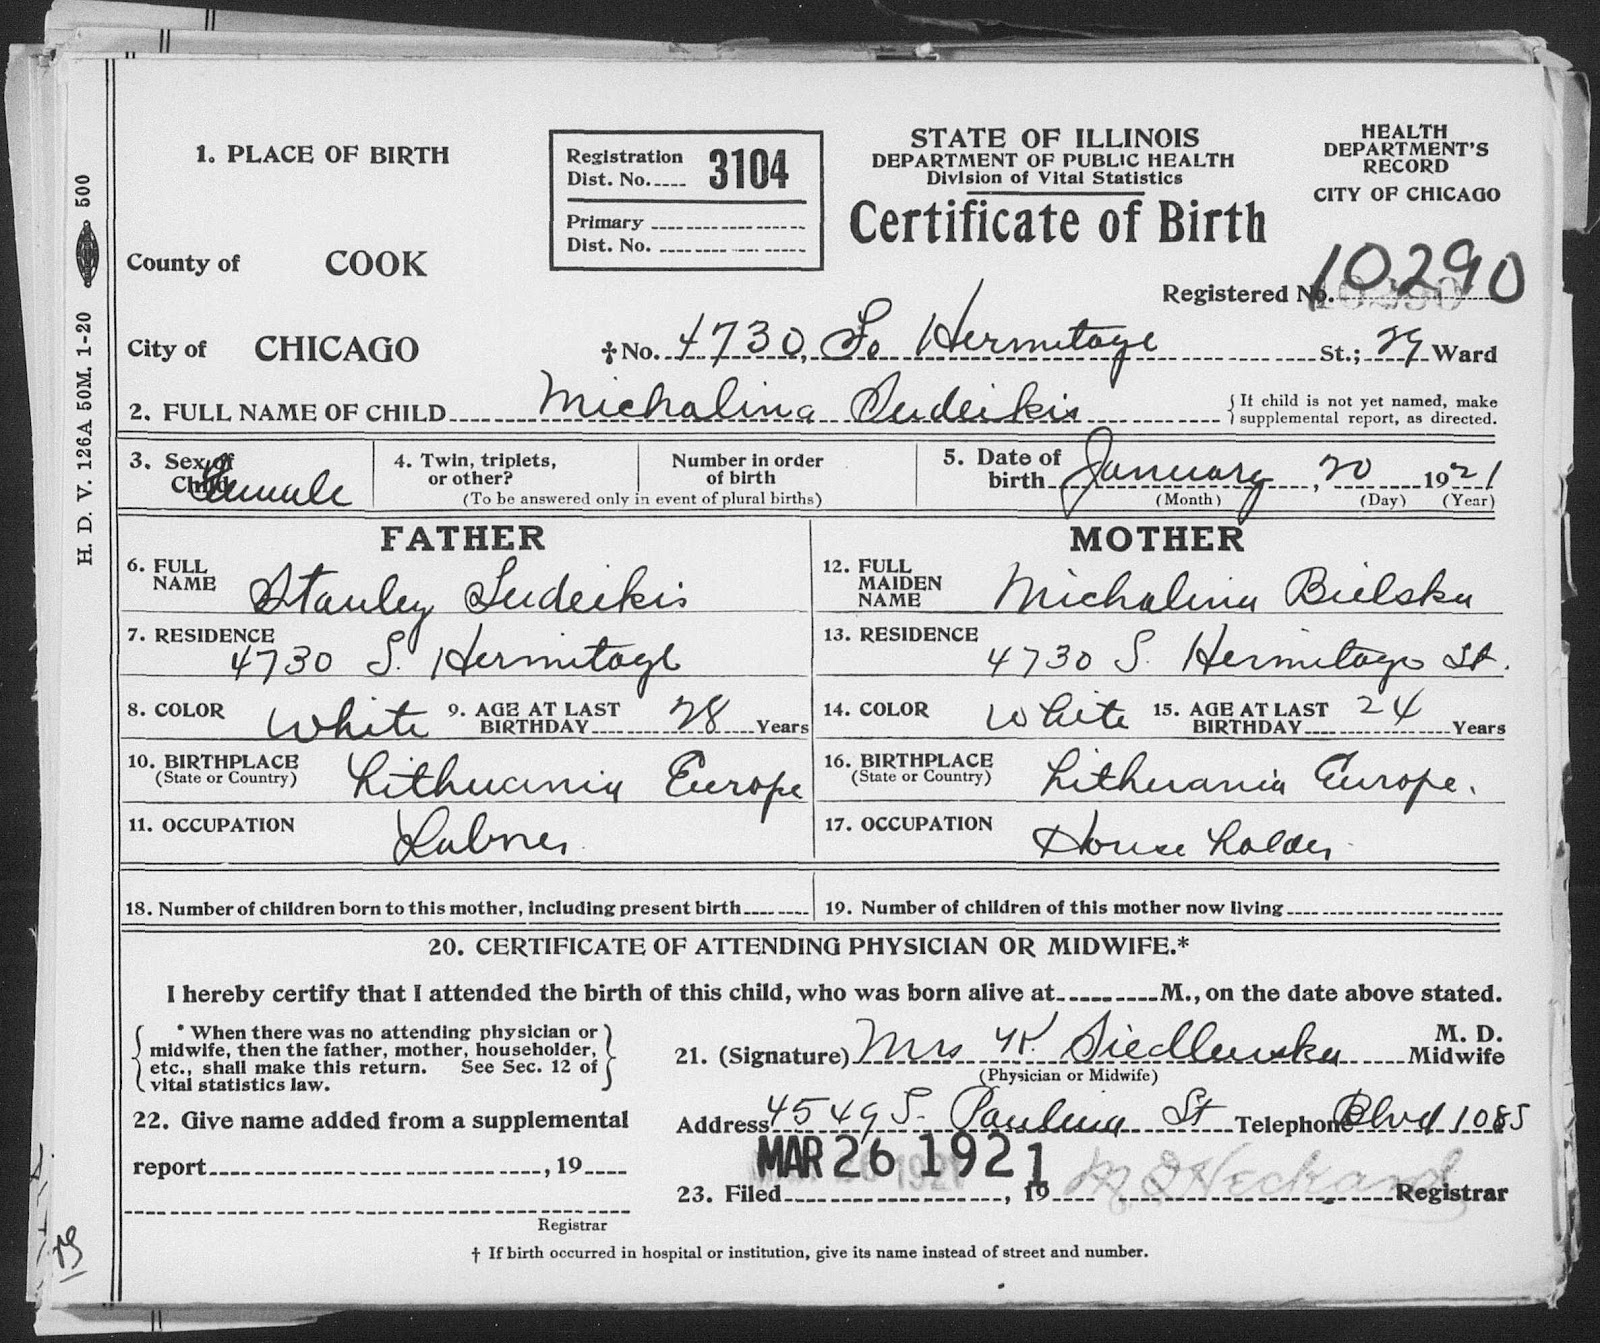 H. D. V. 126A 50M. 1-20 500
1. PLACE OF BIRTH
Registration
Dist. No. 3104
Primary
Dist. No.
STATE OF ILLINOIS
DEPARTMENT OF PUBLIC HEALTH
Division of Vital Statistics
Certificate of Birth
HEALTH
DEPARTMENT'S
RECORD
CITY OF CHICAGO
County of COOK
Registered No. 10290
City of CHICAGO ‡No. 4730, So Hermitage St.; 29 Ward
2. FULL NAME OF CHILD Michalina Sudeikis { If child is not yet named, make
supplemental report, as directed.
3. Sex of
Child Female
4. Twin, triplets,
or other?
Number in order
of birth
(To be answered only in event of plural births)
5. Date of
birth January, 20 1921
(Month) (Day) (Year)
FATHER
6. FULL
NAME Stanley Sudeikis
7. RESIDENCE
4730 S. Hermitage
8. COLOR White 9. AGE AT LAST
BIRTHDAY 28 Years
10. BIRTHPLACE
(State or Country) Lithuania Europe
11. OCCUPATION
MOTHER
12. FULL
MAIDEN
NAME Michalina Bielska
13. RESIDENCE
4730 S. Hermitage St.
14. COLOR White 15. AGE AT LAST
BIRTHDAY 24 Years
16. BIRTHPLACE
(State or Country) Lithuania Europe.
17. OCCUPATION House holder
18. Number of children born to this mother, including present birth
19. Number of children of this mother now living
20. CERTIFICATE OF ATTENDING PHYSICIAN OR MIDWIFE.*
I hereby certify that I attended the birth of this child, who was born alive at M., on the date above stated.
* When there was no attending physician or
midwife, then the father, mother, householder,
etc., shall make this return. See Sec. 12 of
vital statistics law.
21. (Signature) Mrs K. Siedlewska M. D.
Midwife
(Physician or Midwife)
Address 4549 S. Paulina St Telephone Blvd 1085
22. Give name added from a supplemental
report , 19
Registrar
MAR 26 1921
23. Filed , 19 Registrar
† If birth occurred in hospital or institution, give its name instead of street and number.